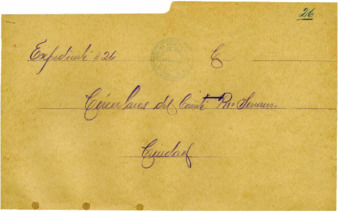 26
Expediente # 26 C
Circulares del Comité Pro-
Ciudad